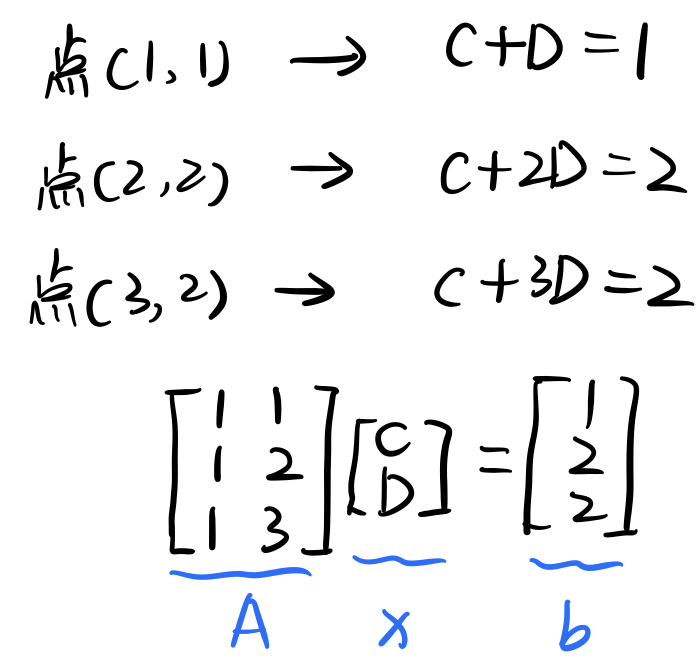 点(1,1) → C+D=1
点(2,2) → C+2D=2
点(3,2) → C+3D=2
[1 1
1 2
1 3] [C
D] = [1
2
2]
A x b